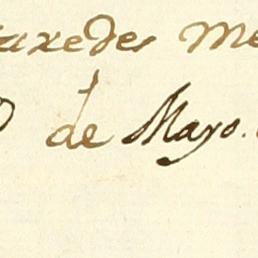 uxedes Me
de Mayo.